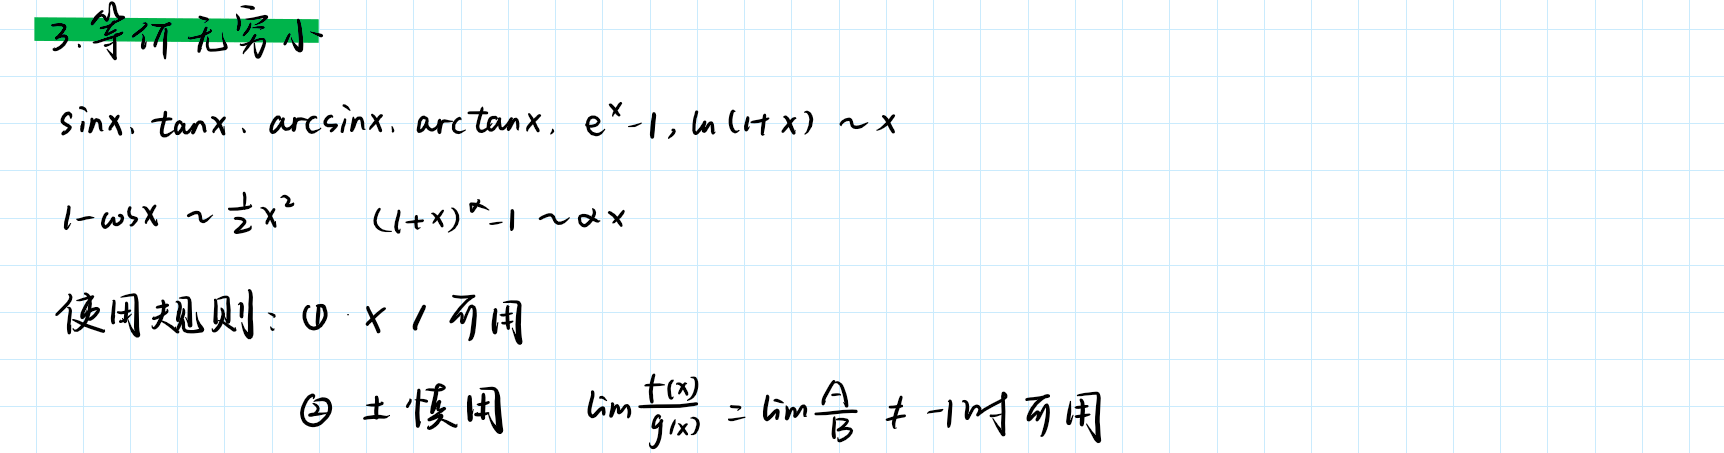 3.等价无穷小
sinx、tanx、arcsinx、arctanx、e^x-1,ln(1+x) ~ x
1-cosx ~ \frac{1}{2}x^2 (1+x)^α-1 ~ αx
使用规则:① × / 可用
② ± 慎用 lim \frac{f(x)}{g(x)} = lim \frac{A}{B} ≠ -1时可用